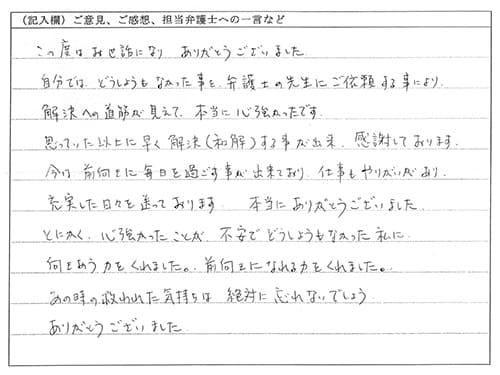 （記入欄）ご意見、ご感想、担当弁護士への一言など
この度はお世話になり ありがとうございました
自分では、どうしようもなかった事を、弁護士の先生にご依頼する事により、
解決への道筋が見えて、本当に心強かったです。
思っていた以上に早く解決（和解）する事が出来、感謝しております。
今は前向きに毎日を過ごす事が出来ており、仕事もやりがいがあり、
充実した日々を送っております 本当にありがとうございました。
とにかく、心強かったことが、不安でどうしようもなかった私に、
向きあう力をくれました。前向きになれる力をくれました。
あの時の救われた気持ちは 絶対に忘れないでしょう
ありがとうございました